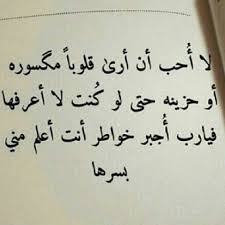 لا أُحب أن أرىٰ قلوباً مگسوره
أو حزينه حتى لو كُنت لا أعرفها
فيارب أُجبر خواطر أنت أعلم مني
بسرها